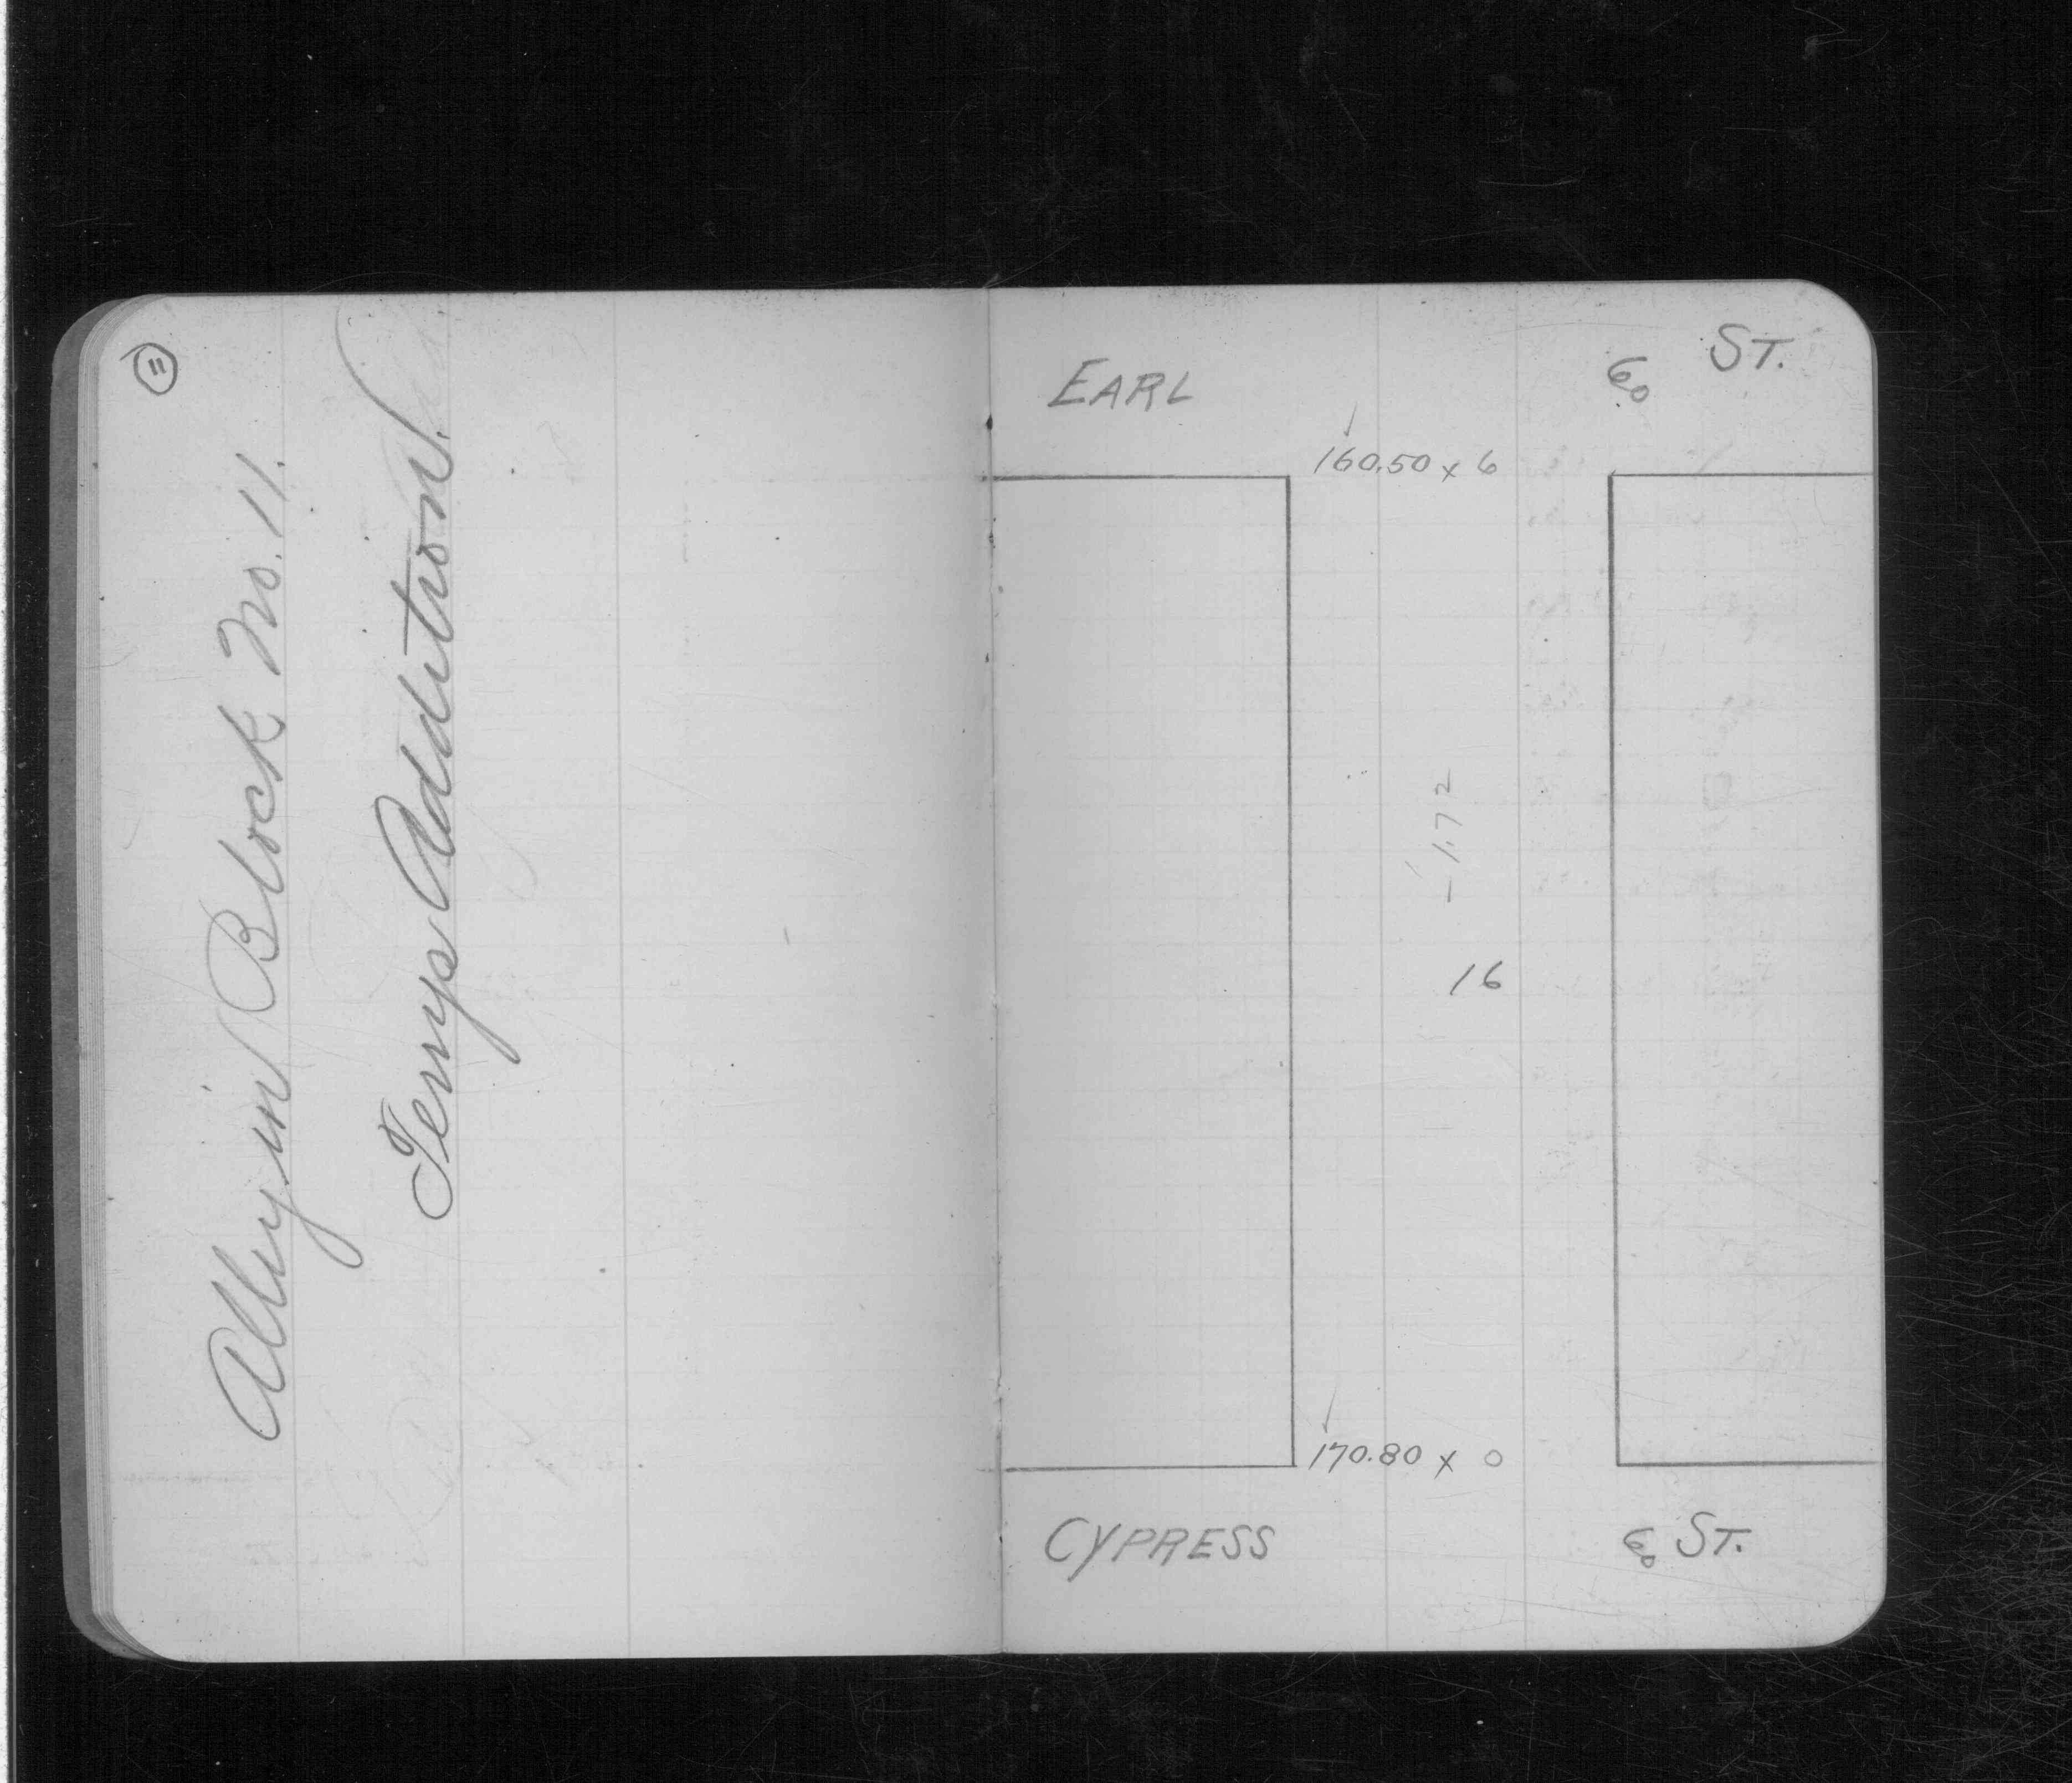 11
Alley in Block No. 11.
Terrys Addition.
EARL St.
160.50 x 6
- 1.72
16
170.80 x 0
CYPRESS St.